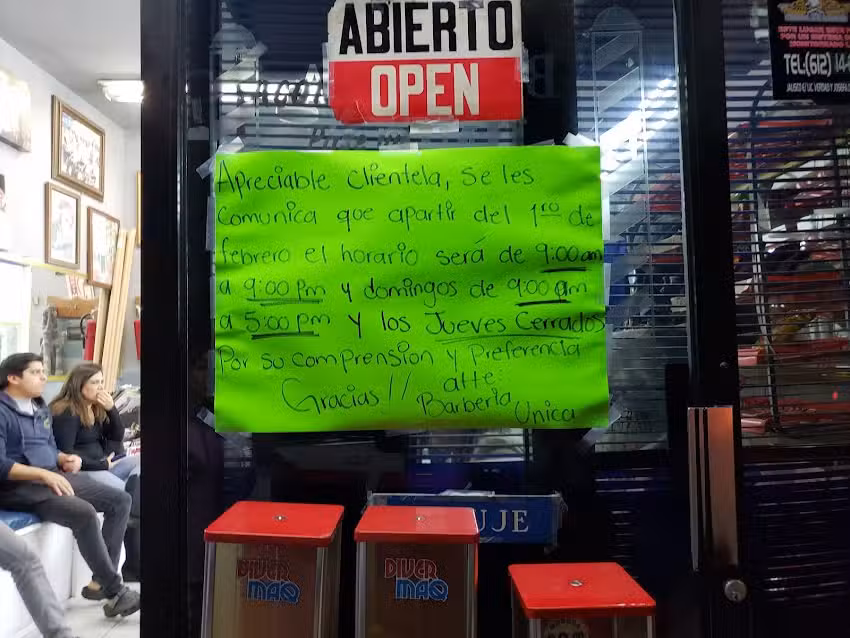 ABIERTO
OPEN
TEL:(612) 14
Apreciable Clientela, se les
comunica que apartir del 1ro de
febrero el horario será de 9:00 am
a 9:00 Pm y domingos de 9:00 am
a 5:00 pm y los Jueves Cerrados
Por su comprension y Preferencia
Gracias // atte
Barberia Unica
UJE
DIVER
MAQ
DIVER
MAQ